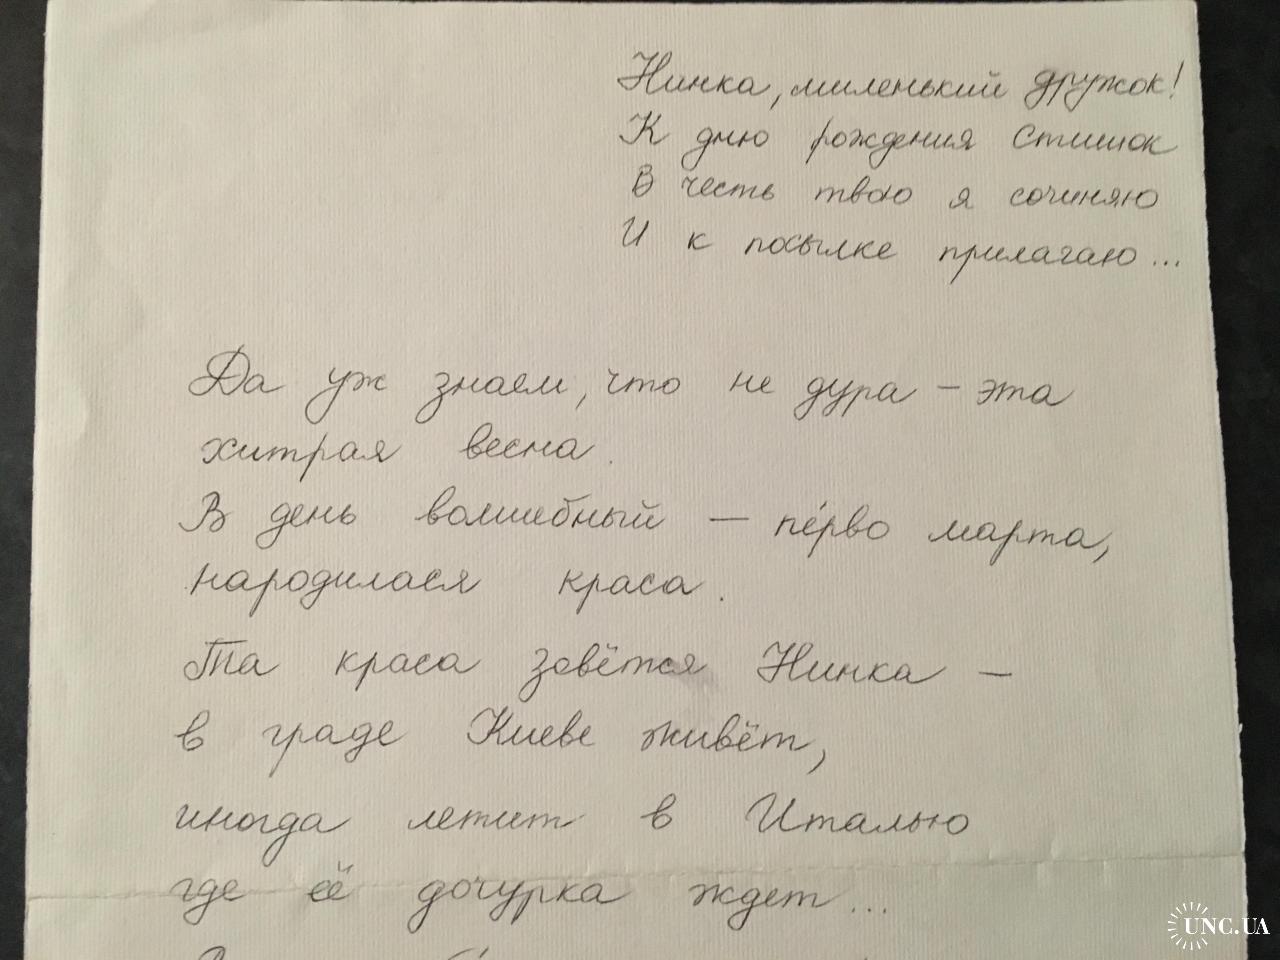 Нинка, миленький дружок!
К дню рождения стишок
В честь твою я сочиняю
И к посылке прилагаю...
Да уж знаем, что не дура – эта
хитрая весна.
В день волшебный – пе́рво марта,
народилася краса.
Та краса зовётся Нинка –
в граде Киеве живёт,
иногда летит в Италью
где её дочурка ждет...
UNC.UA